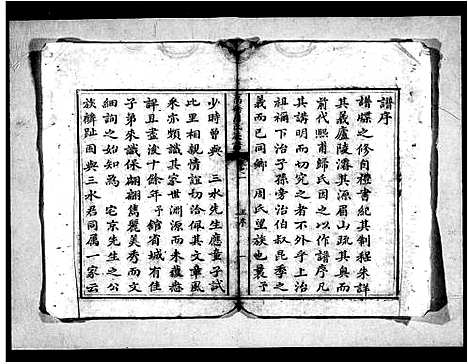 譜序
譜牒之修自禮書紀其制程朱詳
其義廬陵濬其源眉山疏其奥而
前代熙甫歸氏因之以作譜序凡
其講明而切究之者不外乎上治
祖禰下治子孫旁治伯叔昆季之
義而已同鄉 周氏望族也曩予
少時曾與 三水先生應童子試
比里相親情誼切洽佩其文章風
釆亦頗識其家世淵源而未蘊悉
詳且盡浚十餘年予館省城有佳
子弟朱識翩翩雋麗美秀而文
細詢之始知為 宅京先生之公
族麟趾固與三水君同属一家云